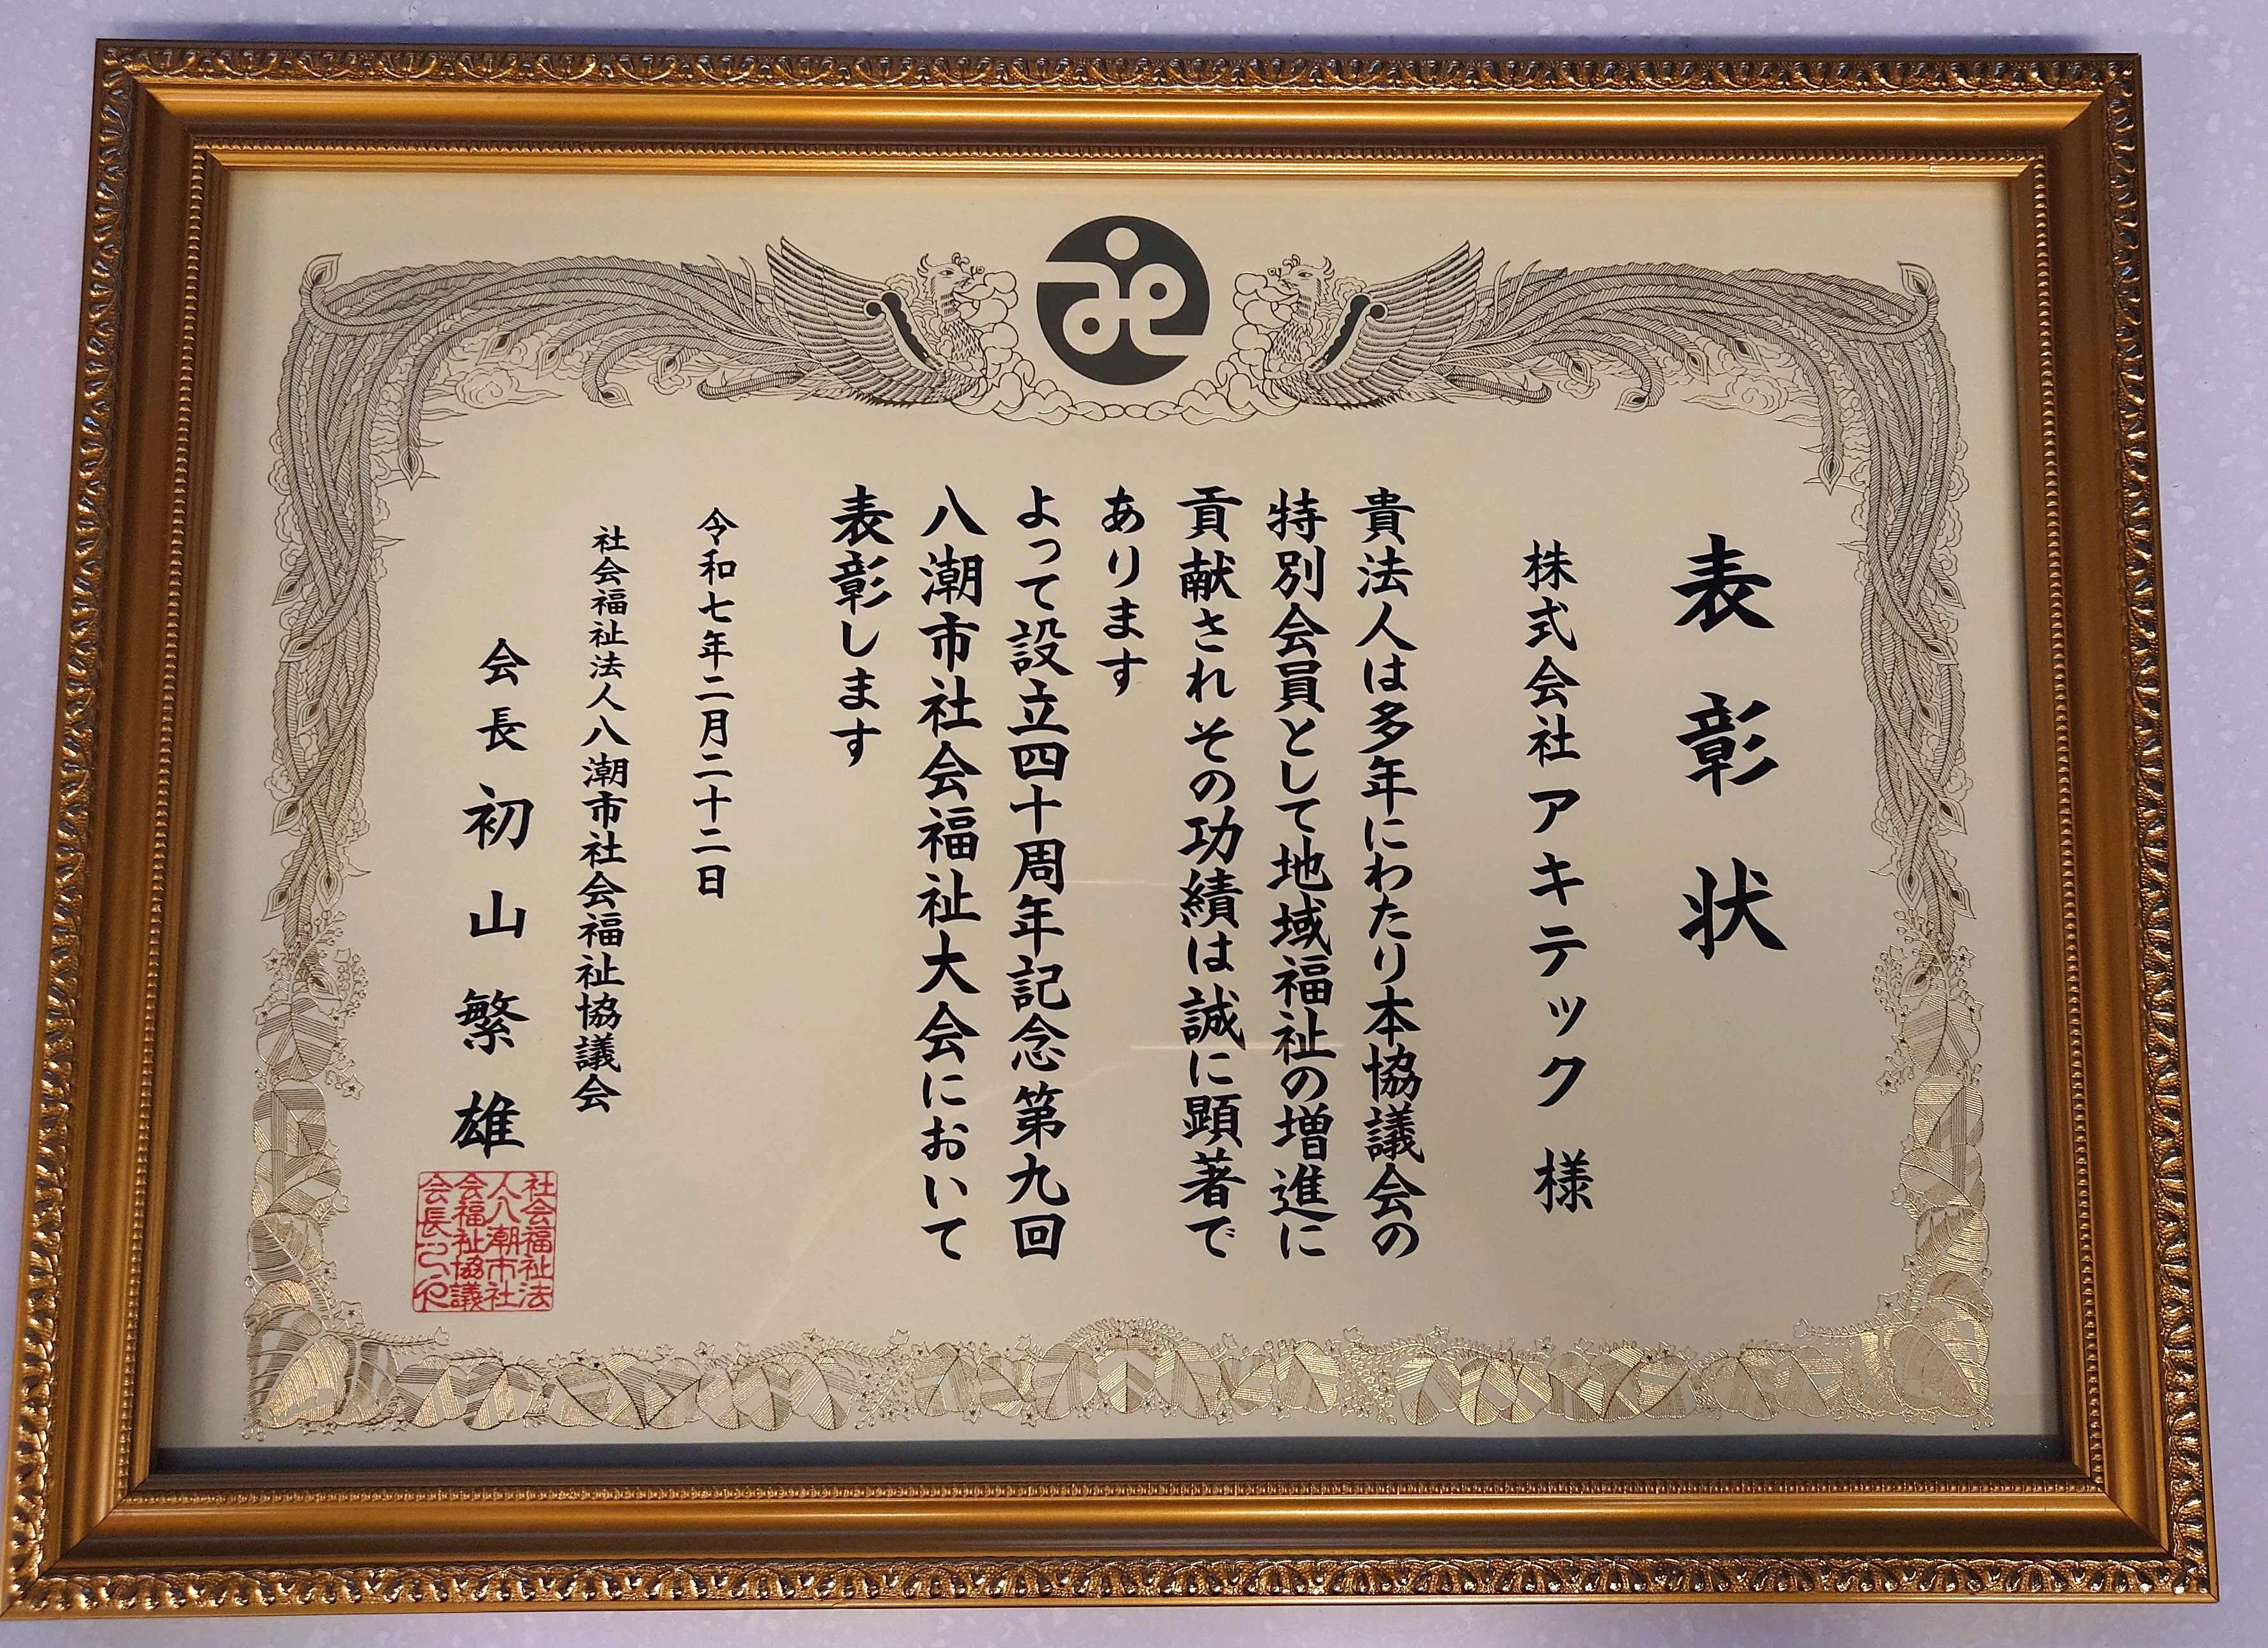 表彰状
株式会社アキテック 様
貴法人は多年にわたり本協議会の
特別会員として地域福祉の増進に
貢献されその功績は誠に顕著で
あります
よって設立四十周年記念第九回
八潮市社会福祉大会において
表彰します
令和七年二月二十二日
社会福祉法人八潮市社会福祉協議会
会長 初山繁雄
社会福祉法
人八潮市社
会福祉協議
会長之印